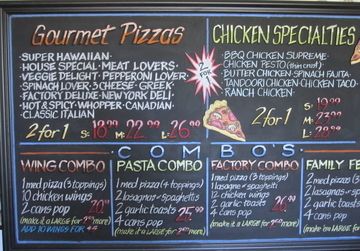 Gourmet Pizzas
SUPER HAWAIIAN
HOUSE SPECIAL · MEAT LOVERS
VEGGIE DELIGHT · PEPPERONI LOVER
SPINACH LOVER · 3 CHEESE · GREEK
FACTORY DELUXE · NEW YORK DELI
HOT & SPICY · WHOPPER · CANADIAN
CLASSIC ITALIAN
2 for 1 S: 18.99 M: 22.99 L: 26.99
2 FOR
CHICKEN SPECIALTIES
BBQ CHICKEN SUPREME
CHICKEN PESTO (thin crust)
BUTTER CHICKEN · SPINACH FAJITA
TANDOORI CHICKEN · CHICKEN TACO
RANCH CHICKEN
2 for 1 S: 19.99
M: 23.99
L: 28.99
COMBO'S
WING COMBO
1 med pizza (3 toppings)
10 chicken wings
2 cans pop
(make it a LARGE for more)
ADD 10 WINGS FOR
PASTA COMBO
1 med pizza (4 toppings)
2 lasagnas or spaghetti
2 garlic toasts
4 cans pop 25.99
(make it a LARGE for more)
FACTORY COMBO
1 med pizza (3 toppings)
1 lasagna or spaghetti
12 chicken wings
2 garlic toasts
4 cans pop
(make it a LARGE for more)
FAMILY FE
2 med pizzas
2 lasagnas or
2 garlic toasts
4 cans
(make it a LARGE